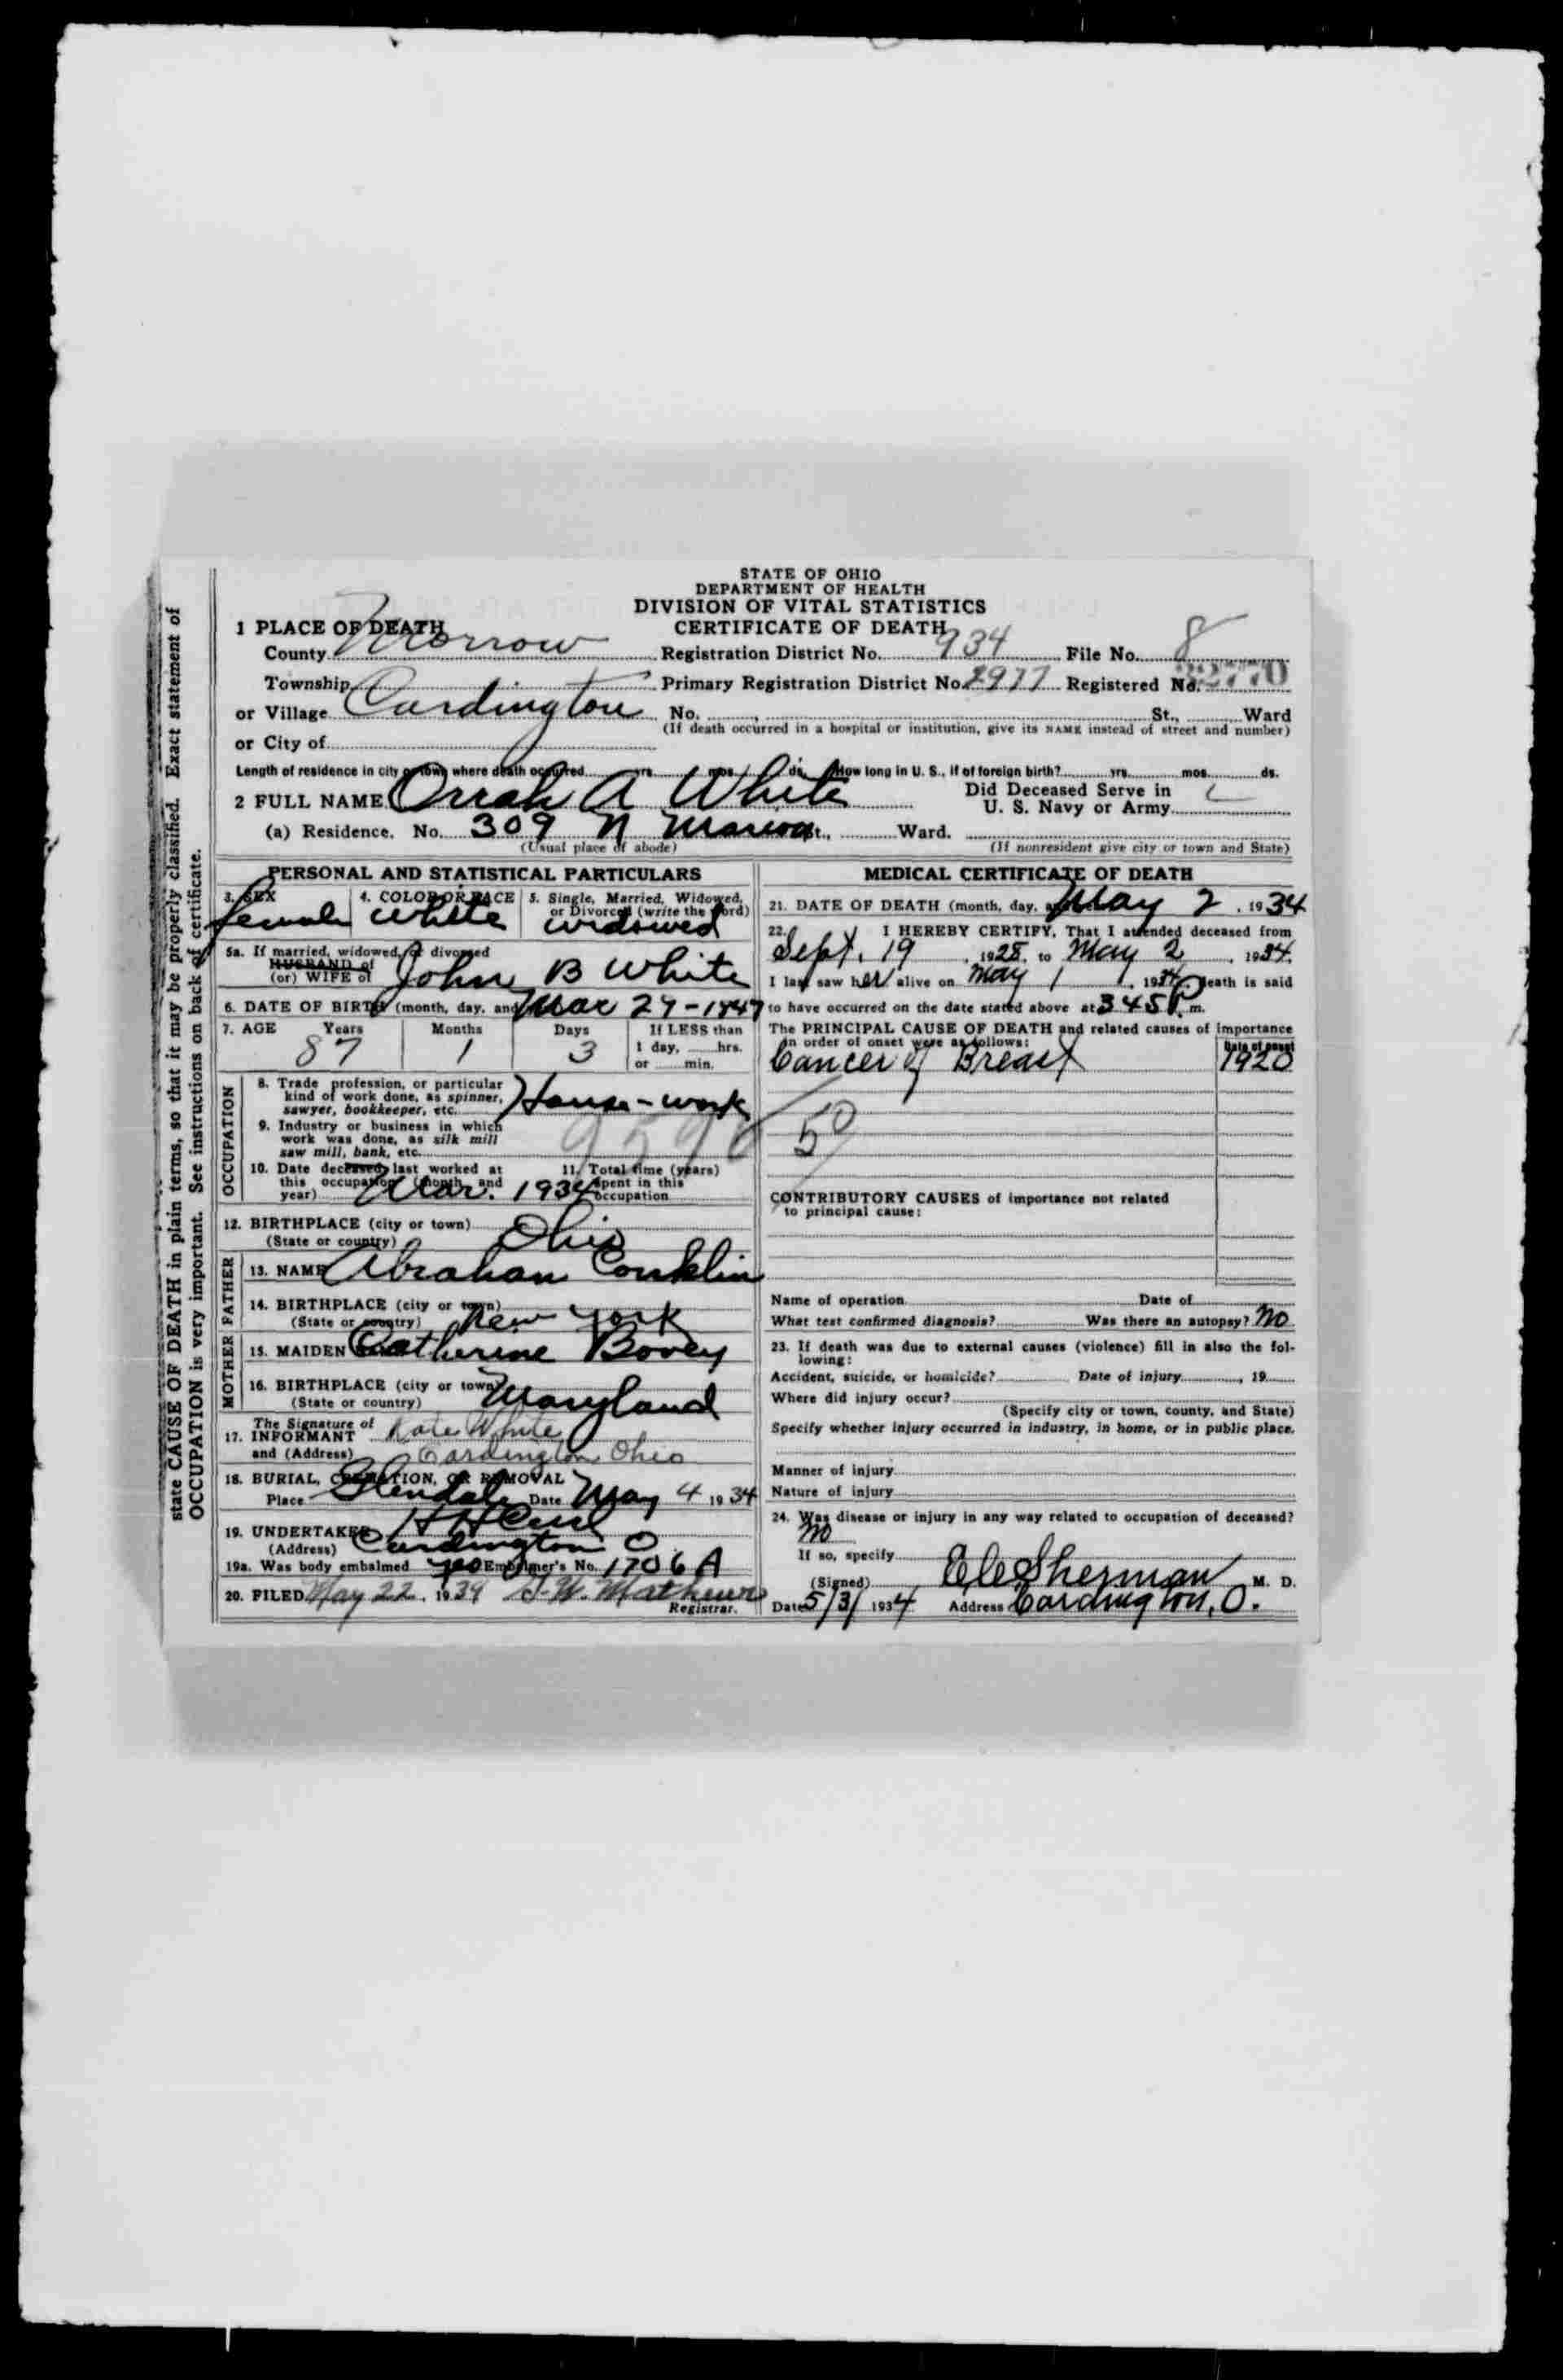 state CAUSE OF DEATH in plain terms, so that it may be properly classified. Exact statement of
OCCUPATION is very important. See instructions on back of certificate.
STATE OF OHIO
DEPARTMENT OF HEALTH
DIVISION OF VITAL STATISTICS
CERTIFICATE OF DEATH
1 PLACE OF DEATH
County Morrow Registration District No. 934 File No. 8
Township Primary Registration District No. 2977 Registered No. 32770
or Village Cardington No. St., Ward
(If death occurred in a hospital or institution, give its NAME instead of street and number)
or City of
Length of residence in city or town where death occurred yrs. mos. ds. How long in U. S., if of foreign birth? yrs. mos. ds.
2 FULL NAME Orrah A White Did Deceased Serve in
U. S. Navy or Army
(a) Residence. No. 309 N Marion St., Ward.
(Usual place of abode) (If nonresident give city or town and State)
PERSONAL AND STATISTICAL PARTICULARS
3. SEX 4. COLOR OR RACE 5. Single, Married, Widowed,
or Divorced (write the word)
female white widowed
5a. If married, widowed, or divorced
HUSBAND of
(or) WIFE of John B White
6. DATE OF BIRTH (month, day, and Mar 29-1847
7. AGE Years Months Days If LESS than
87 1 3 1 day, hrs.
or min.
OCCUPATION
8. Trade profession, or particular
kind of work done, as spinner,
sawyer, bookkeeper, etc. House-work
9. Industry or business in which
work was done, as silk mill
saw mill, bank, etc.
10. Date deceased last worked at 11. Total time (years)
this occupation (month and spent in this
year) Mar. 1934 occupation
12. BIRTHPLACE (city or town)
(State or country) Ohio
FATHER
13. NAME Abraham Conklin
14. BIRTHPLACE (city or town)
(State or country) New York
MOTHER
15. MAIDEN Catherine Bovey
16. BIRTHPLACE (city or town)
(State or country) Maryland
The Signature of
17. INFORMANT Kate White
and (Address) Cardington Ohio
18. BURIAL, CREMATION, OR REMOVAL
Place Glendale Date May 4 1934
19. UNDERTAKER
(Address) Cardington O
19a. Was body embalmed yes Embalmer's No. 1706 A
20. FILED May 22, 1934 Mathews
Registrar.
MEDICAL CERTIFICATE OF DEATH
21. DATE OF DEATH (month, day, May 2, 1934
22. I HEREBY CERTIFY, That I attended deceased from
Sept. 19, 1928, to May 2, 1934.
I last saw her alive on May 1, 1934, death is said
to have occurred on the date stated above at 345 P. m.
The PRINCIPAL CAUSE OF DEATH and related causes of importance
in order of onset were as follows: Date of onset
Cancer of Breast 1920
50
CONTRIBUTORY CAUSES of importance not related
to principal cause:
Name of operation Date of
What test confirmed diagnosis? Was there an autopsy? No
23. If death was due to external causes (violence) fill in also the fol-
lowing:
Accident, suicide, or homicide? Date of injury , 19
Where did injury occur?
(Specify city or town, county, and State)
Specify whether injury occurred in industry, in home, or in public place.
Manner of injury
Nature of injury
24. Was disease or injury in any way related to occupation of deceased?
No
If so, specify
(Signed) Sherman M. D.
Date 5/3/1934 Address Cardington, O.